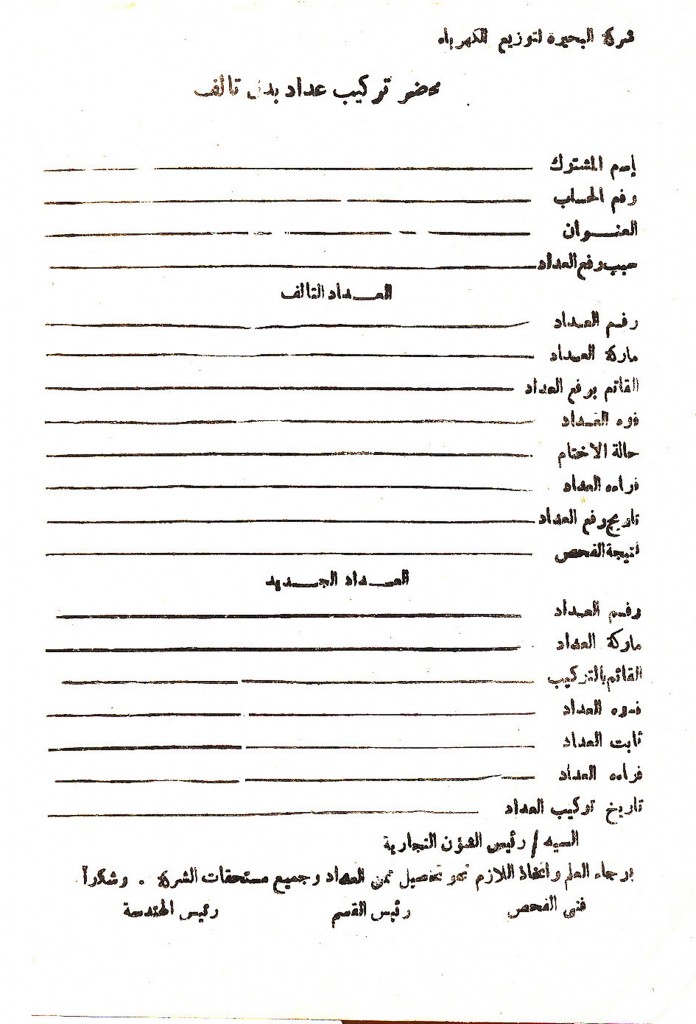 شركة البحيرة لتوزيع الكهرباء
محضر تركيب عداد بدل تالف
إسم المشترك
رقم الحساب
العنــوان
سبب رفع العداد
العــداد التالف
رقــم العـداد
ماركة العـداد
القائم برفع العداد
قوه العـداد
حالة الاختام
قراءه العداد
تاريخ رفع العداد
نتيجة الفحص
العــداد الجــديد
رقــم العـداد
ماركة العداد
القائم بالتركيب
قــوه العداد
ثابت العداد
قراءه العداد
تاريخ تركيب العداد
السيد / رئيس الشؤن التجارية
برجاء العلم واتخاذ اللازم نحو تحصيل ثمن العداد وجميع مستحقات الشركة . وشكراً
فنى الفحص رئيس القسم رئيس الهندسة